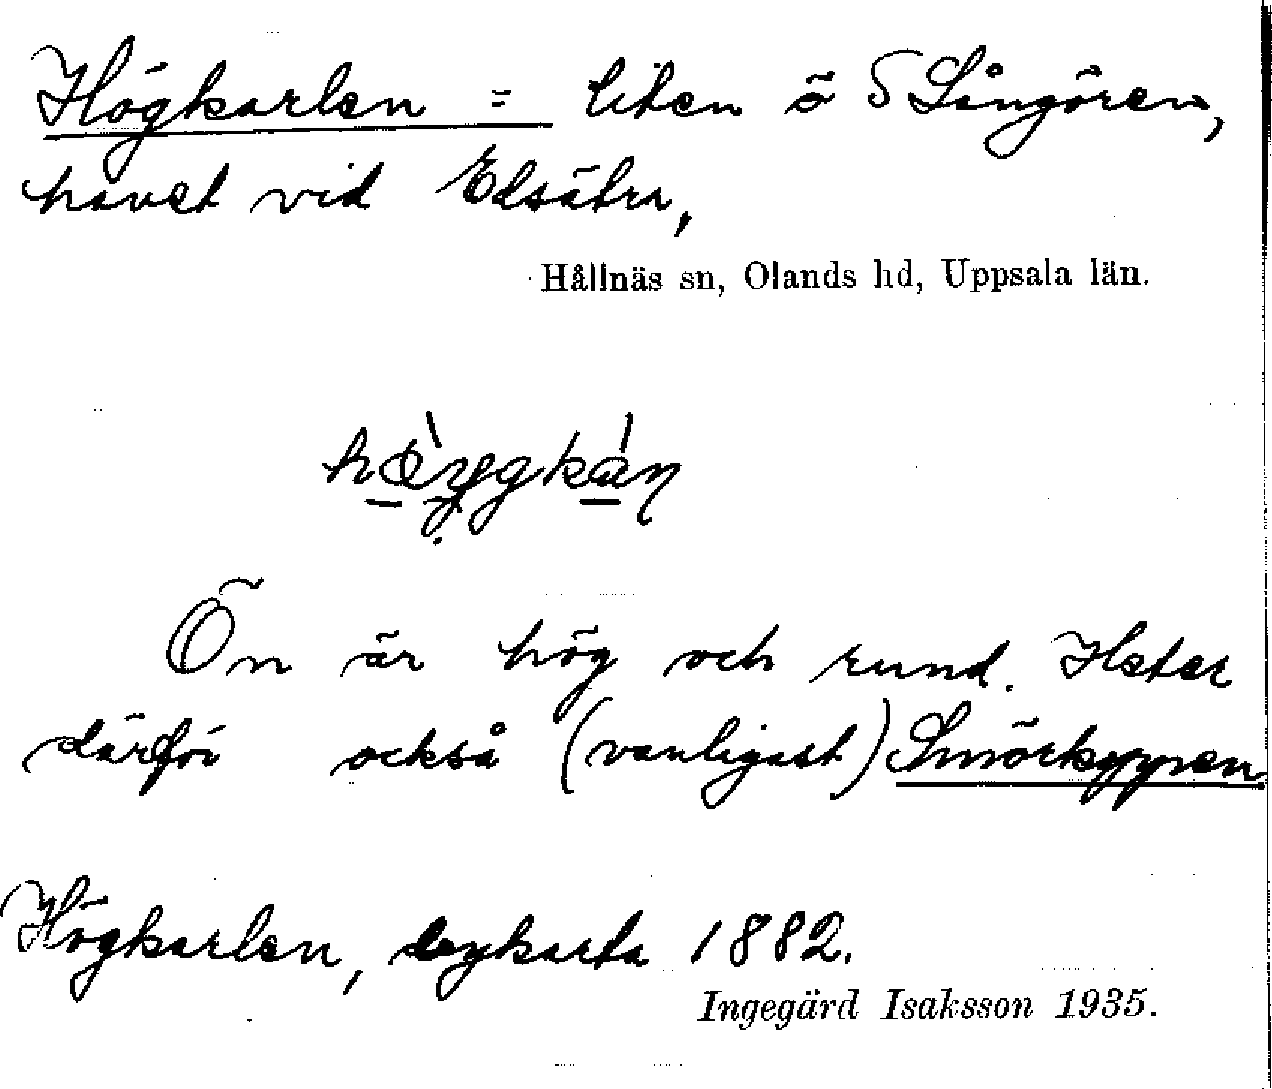 Högkarlen = liten ö S Långören,
havet vid Edsätra,
Hållnäs sn, Olands hd, Uppsala län.
Ön är hög och rund. Heter
därför också (vanligast) Smörkyppen
Högkarlen, segkarta 1882.
Ingegärd Isaksson 1935.